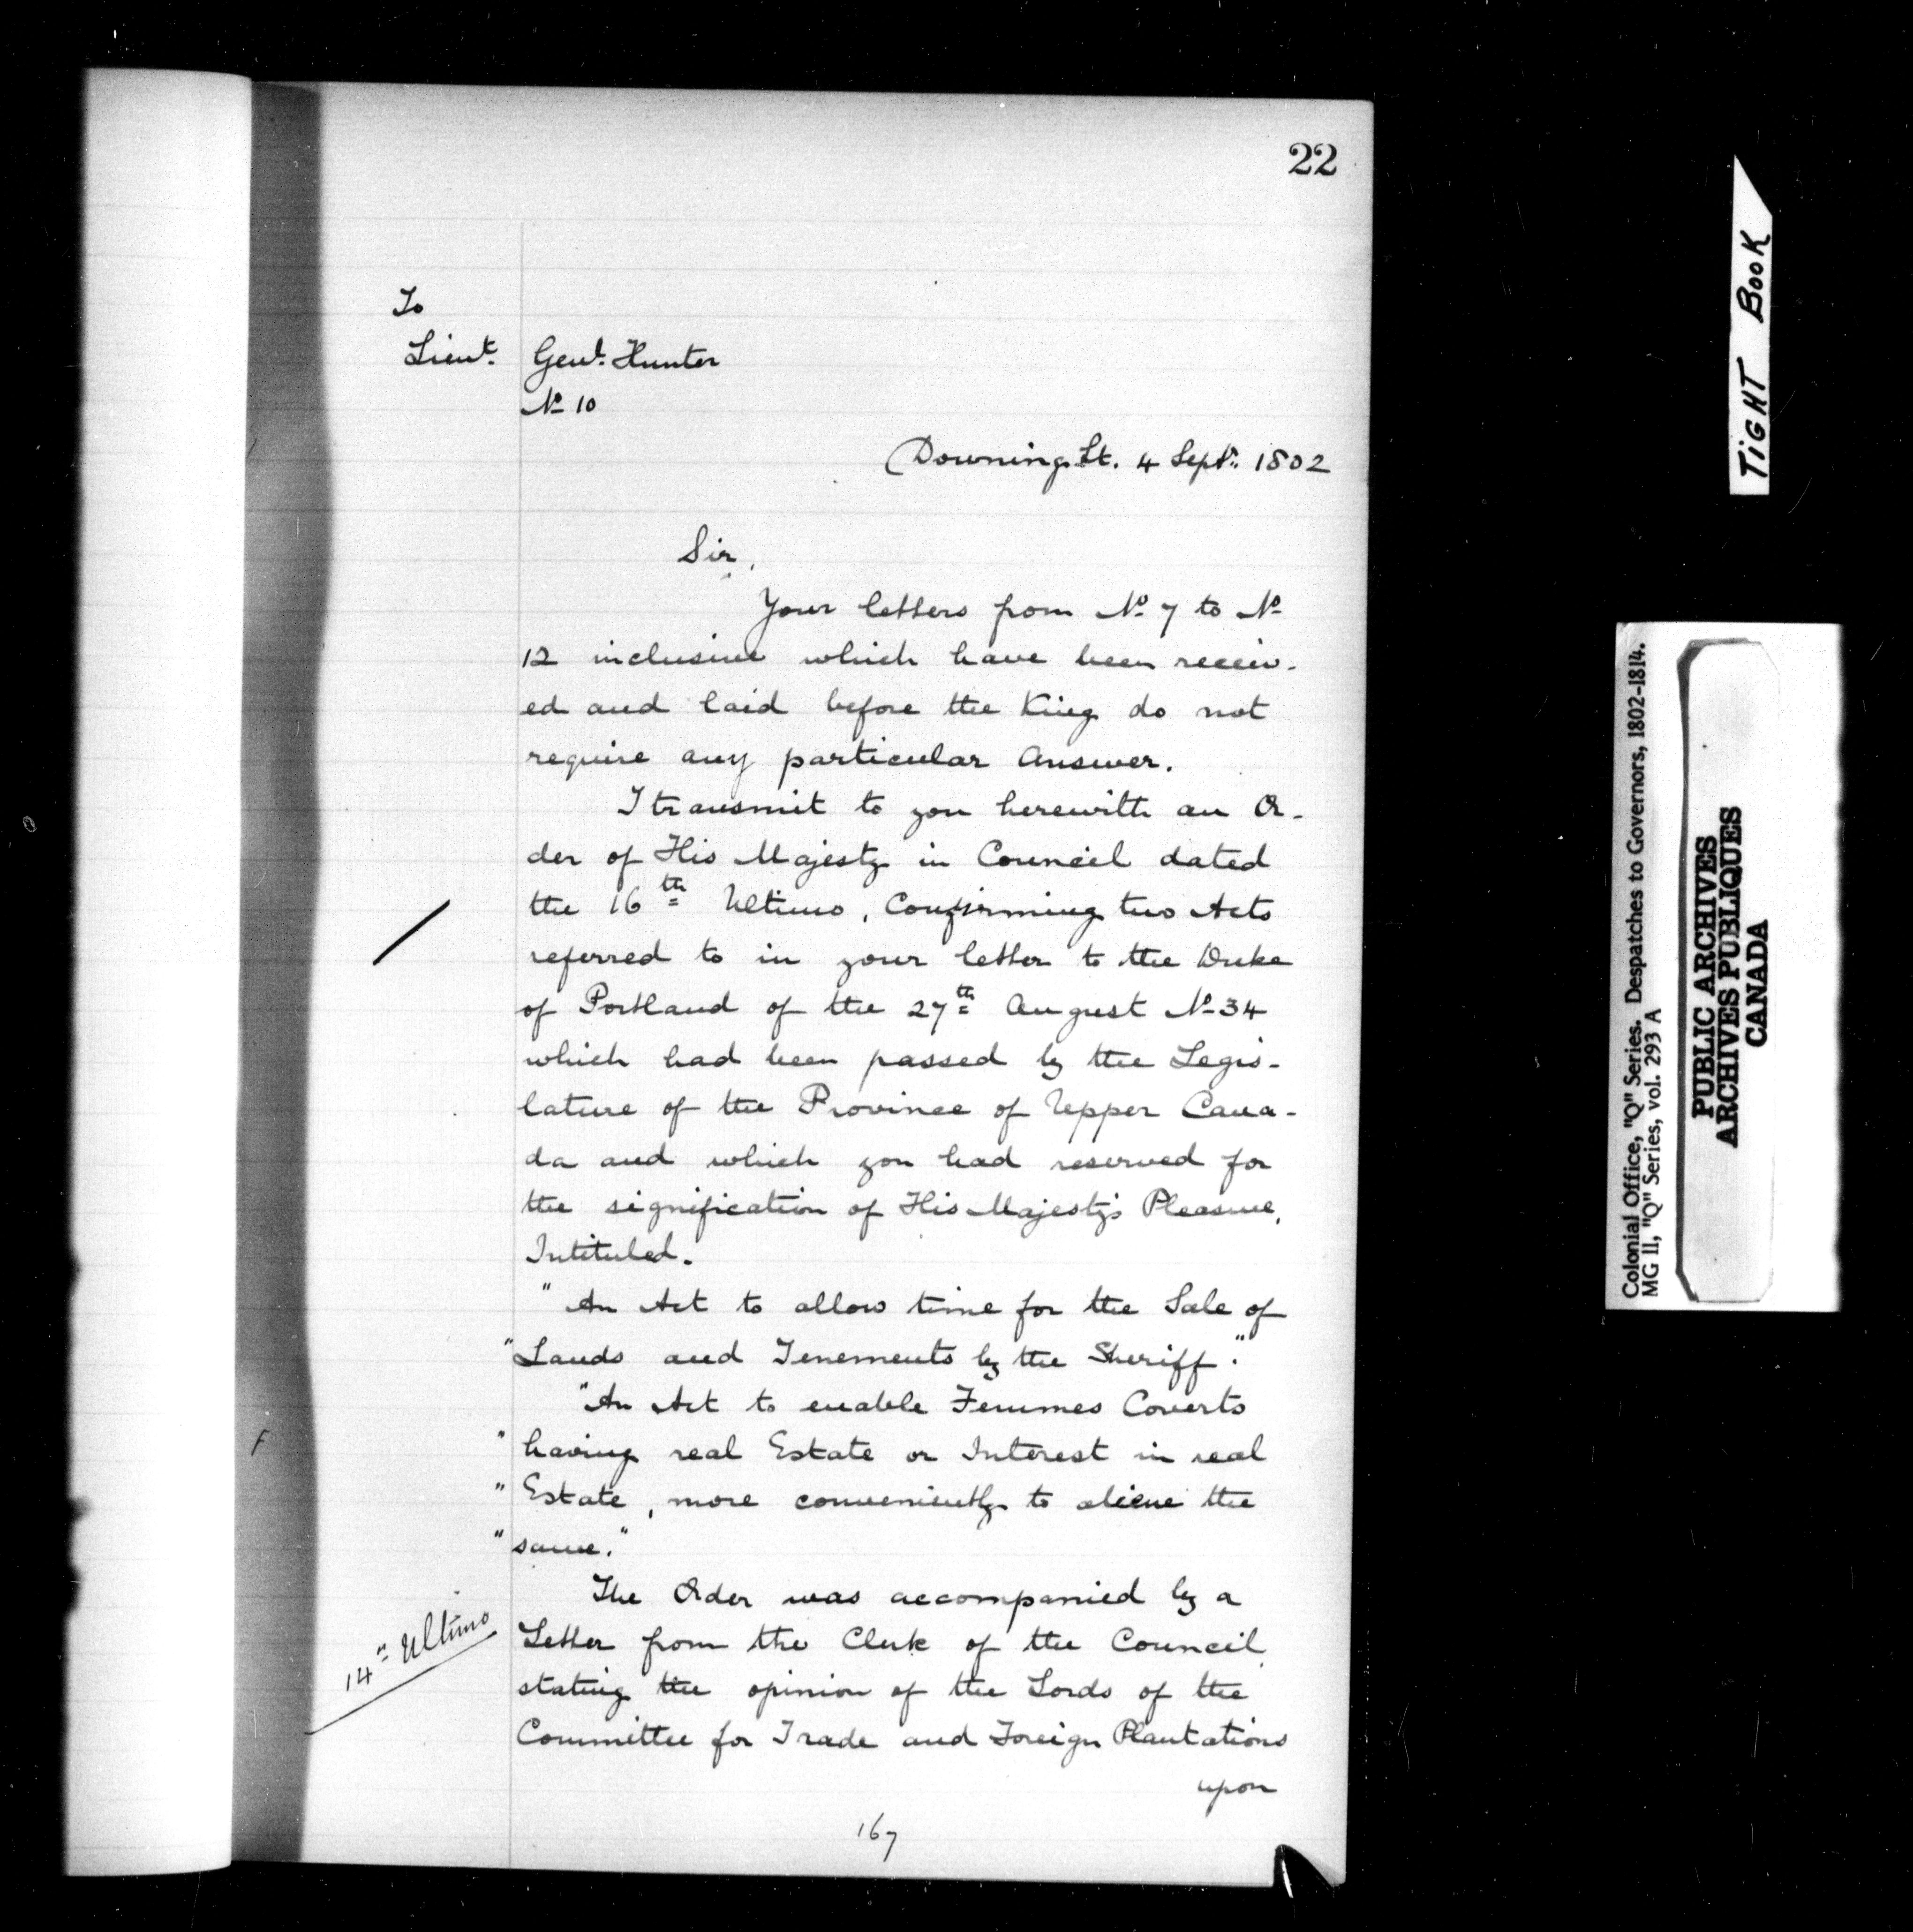 22
To
Lieut. Genl. Hunter
No 10
Downing St. 4 Septr. 1802
Sir,
Your letters from No 7 to No
12 inclusive which have been receiv-
ed and laid before the King do not
require any particular Answer.
I transmit to you herewith an Or-
der of His Majesty in Council dated
the 16th Ultimo, Confirming two Acts
referred to in your letter to the Duke
of Portland of the 27th August No 34
which had been passed by the Legis-
lature of the Province of Upper Cana-
da and which you had reserved for
the signification of His Majesty's Pleasure,
Intituled.
"An Act to allow time for the Sale of
"Lands and Tenements by the Sheriff."
"An Act to enable Femmes Coverts
"having real Estate or Interest in real
"Estate, more conveniently to aliene the
"same."
The Order was accompanied by a
14th Ultimo
Letter from the Clerk of the Council
stating the opinion of the Lords of the
Committee for Trade and Foreign Plantations
upon
167
TIGHT BOOK
Colonial Office, "Q" Series. Despatches to Governors, 1802-1814.
MG 11, "Q" Series, vol. 293 A
PUBLIC ARCHIVES
ARCHIVES PUBLIQUES
CANADA